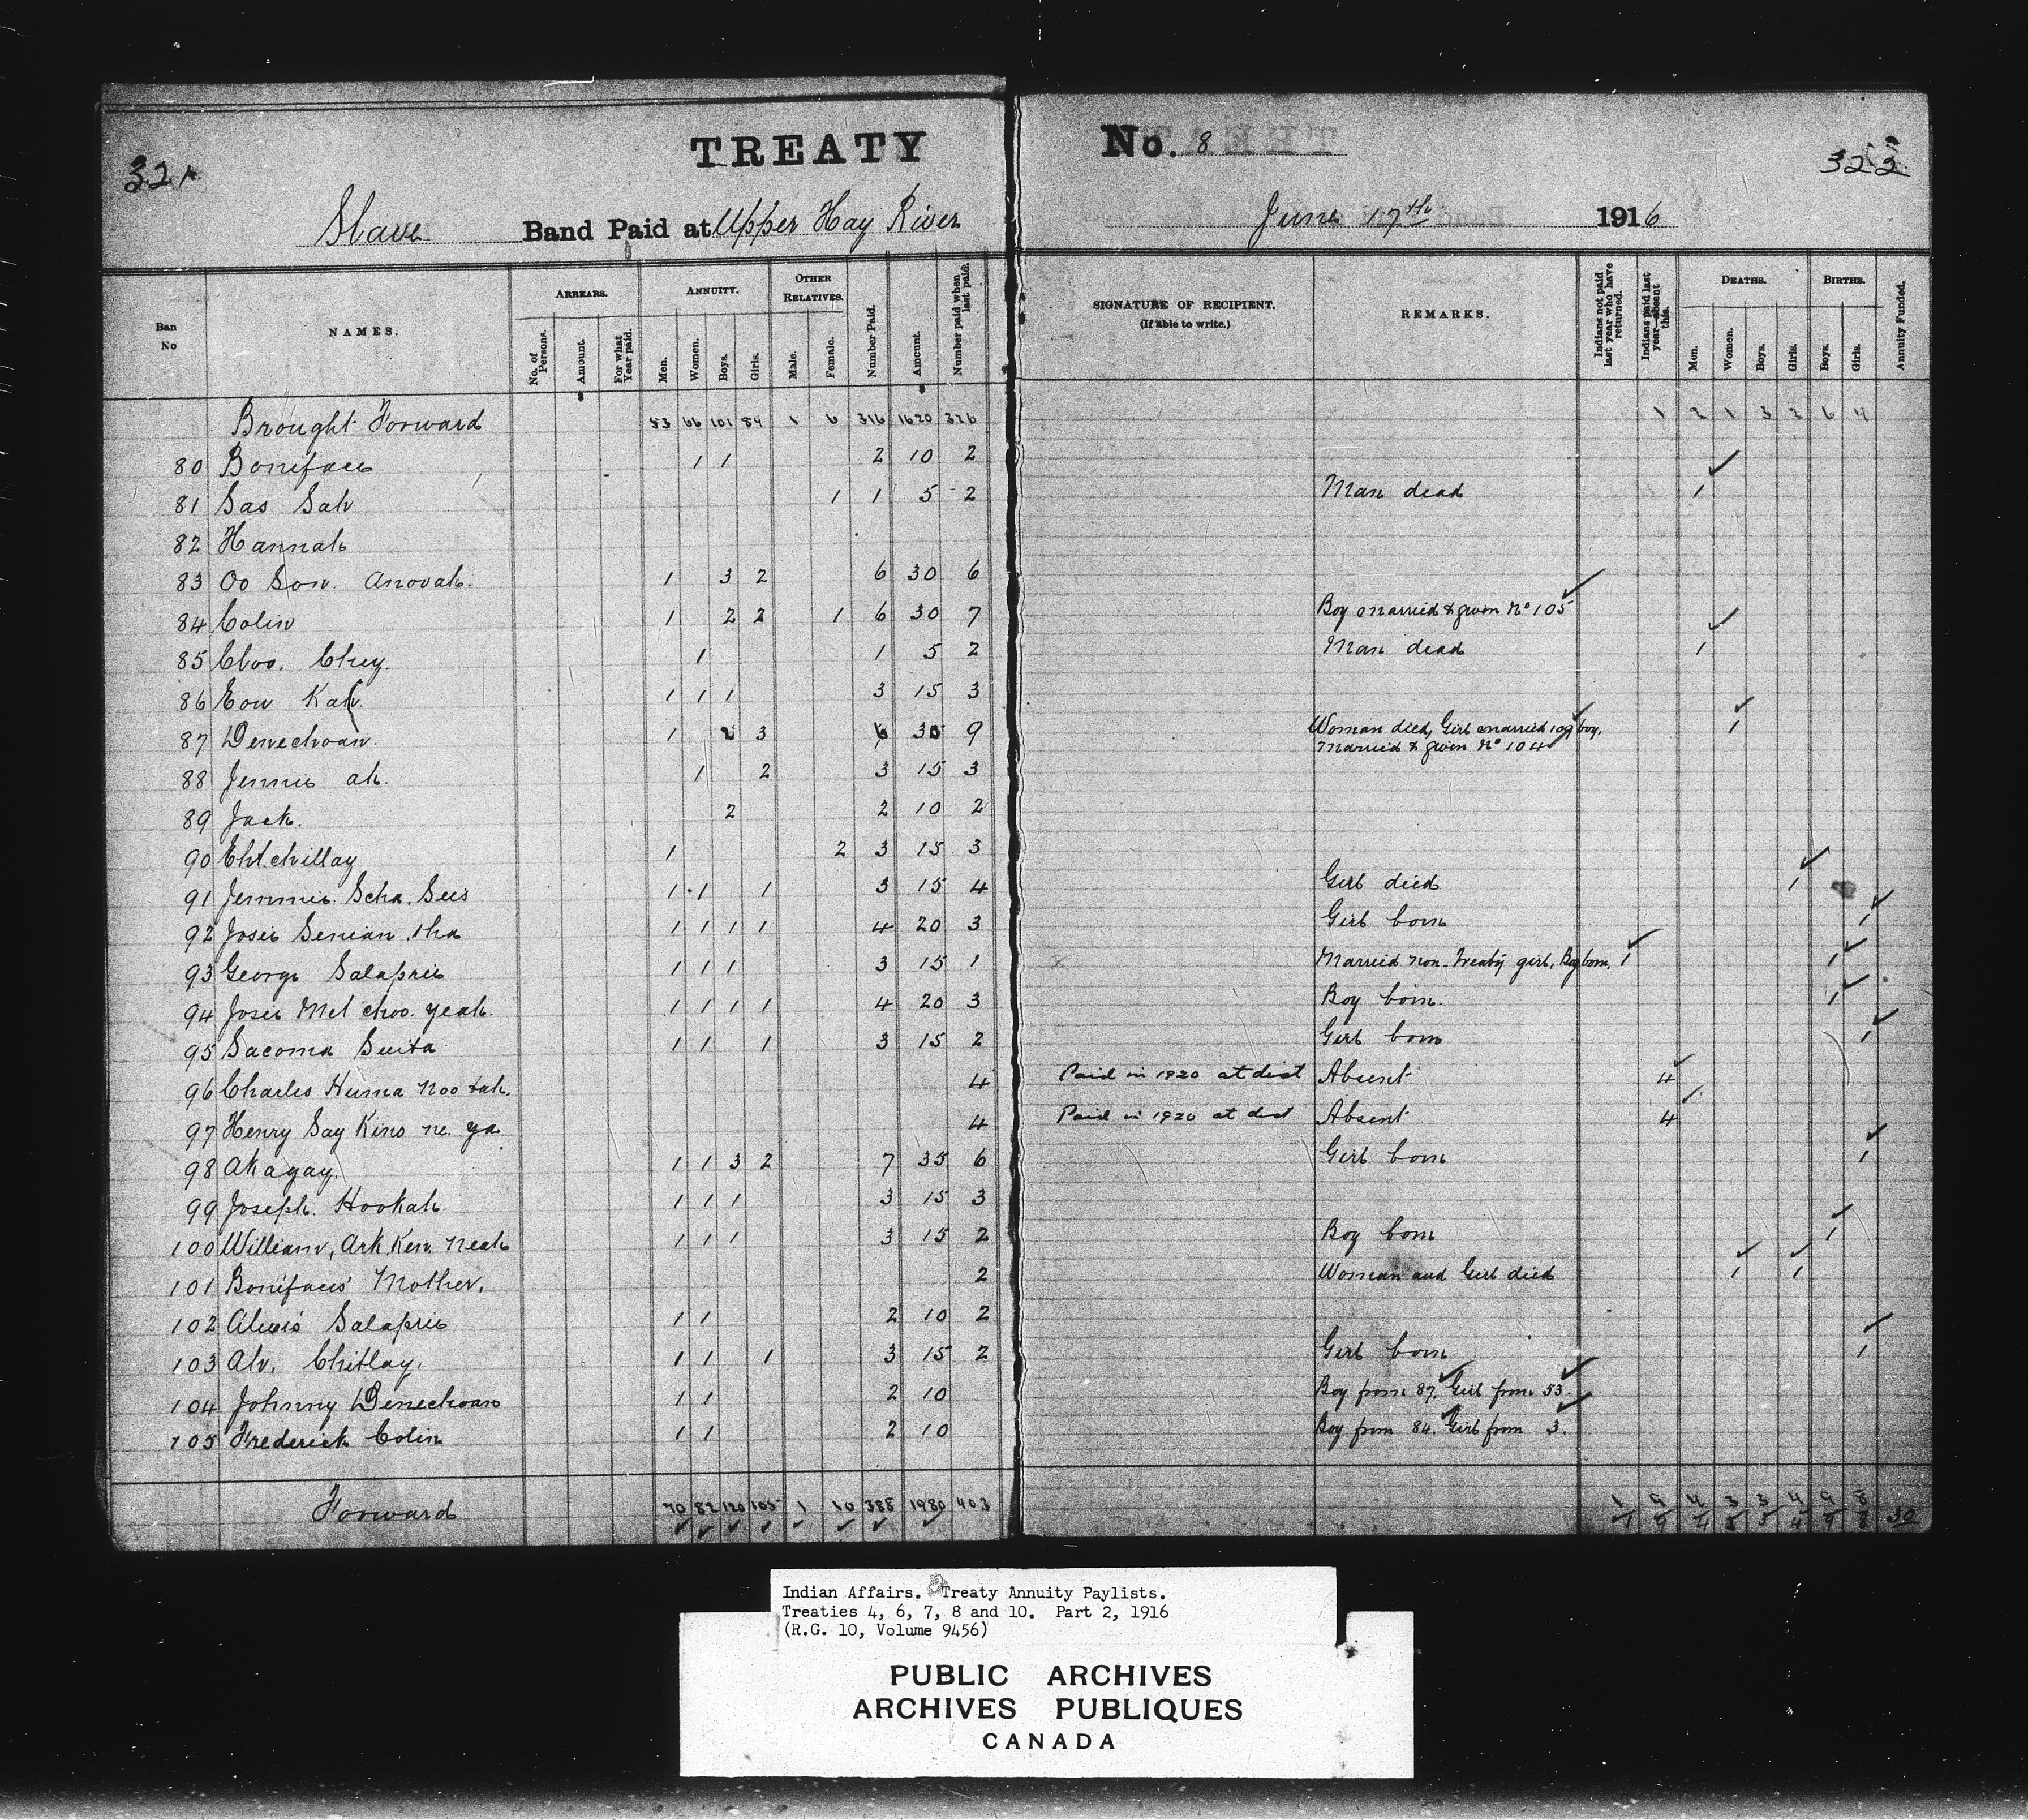 321
TREATY
No. 8
322
Slave Band Paid at Upper Hay River
June 17th 1916
Ban No
NAMES.
ARREARS.
No. of Persons.
Amount.
For what Year paid.
ANNUITY.
Men.
Women.
Boys.
Girls.
OTHER RELATIVES.
Male.
Female.
Number Paid.
Amount.
Number paid when last paid.
SIGNATURE OF RECIPIENT.
(If able to write.)
REMARKS.
Indians not paid last year who have returned.
Indians paid last year—absent this.
DEATHS.
Men.
Women.
Boys.
Girls.
BIRTHS.
Boys.
Girls.
Annuity Funded.
Brought Forward 53 66 101 84 1 6 316 1620 326 1 2 1 3 2 6 4
80 Boniface 1 1 2 10 2
81 Sas Sah 1 1 5 2 Man dead 1
82 Hannah
83 Oo Sow. Anovah. 1 3 2 6 30 6
84 Colin 1 2 2 1 6 30 7 Boy married & given No 105
85 Choo. Chey. 1 1 5 2 Man dead 1
86 Eow Kah. 1 1 1 3 15 3
87 Denechoan. 1 2 3 6 30 9 Woman died, Girl married 109 boy, 1
married & given No 104
88 Jennie ah. 1 2 3 15 3
89 Jack. 2 2 10 2
90 Ehtchillay 1 2 3 15 3
91 Jemmie. Scha. Sees 1 1 1 3 15 4 Girl died 1
92 Josie Senian. tha 1 1 1 1 4 20 3 Girl born 1
93 George Salaprie 1 1 1 3 15 1 Married non-Treaty girl, Boy born, 1 1
94 Josie Met choo. yeah. 1 1 1 1 4 20 3 Boy born. 1
95 Sacoma Suita 1 1 1 3 15 2 Girl born 1
96 Charles Huma noo tah. 4 Paid in 1920 at dist Absent 4
97 Henry Say Kino ne. ya 4 Paid in 1920 at dist Absent 4
98 Akagay. 1 1 3 2 7 35 6 Girl born 1
99 Joseph. Hookah 1 1 1 3 15 3
100 William, Ark Ken. Neah 1 1 1 3 15 2 Boy born 1
101 Boniface's Mother. 2 Woman and Girl died 1 1
102 Alexis Salaprie 1 1 2 10 2
103 Ah. Chitlay. 1 1 1 3 15 2 Girl born 1
104 Johnny Denechoan 1 1 2 10 Boy from 87. Girl from 53.
105 Frederick Colin 1 1 2 10 Boy from 84. Girl from 3.
Forward 70 82 120 105 1 10 388 1980 403 1 9 4 3 3 4 9 8
1 9 4 3 3 4 9 8 30
Indian Affairs. Treaty Annuity Paylists.
Treaties 4, 6, 7, 8 and 10. Part 2, 1916
(R.G. 10, Volume 9456)
PUBLIC ARCHIVES
ARCHIVES PUBLIQUES
CANADA